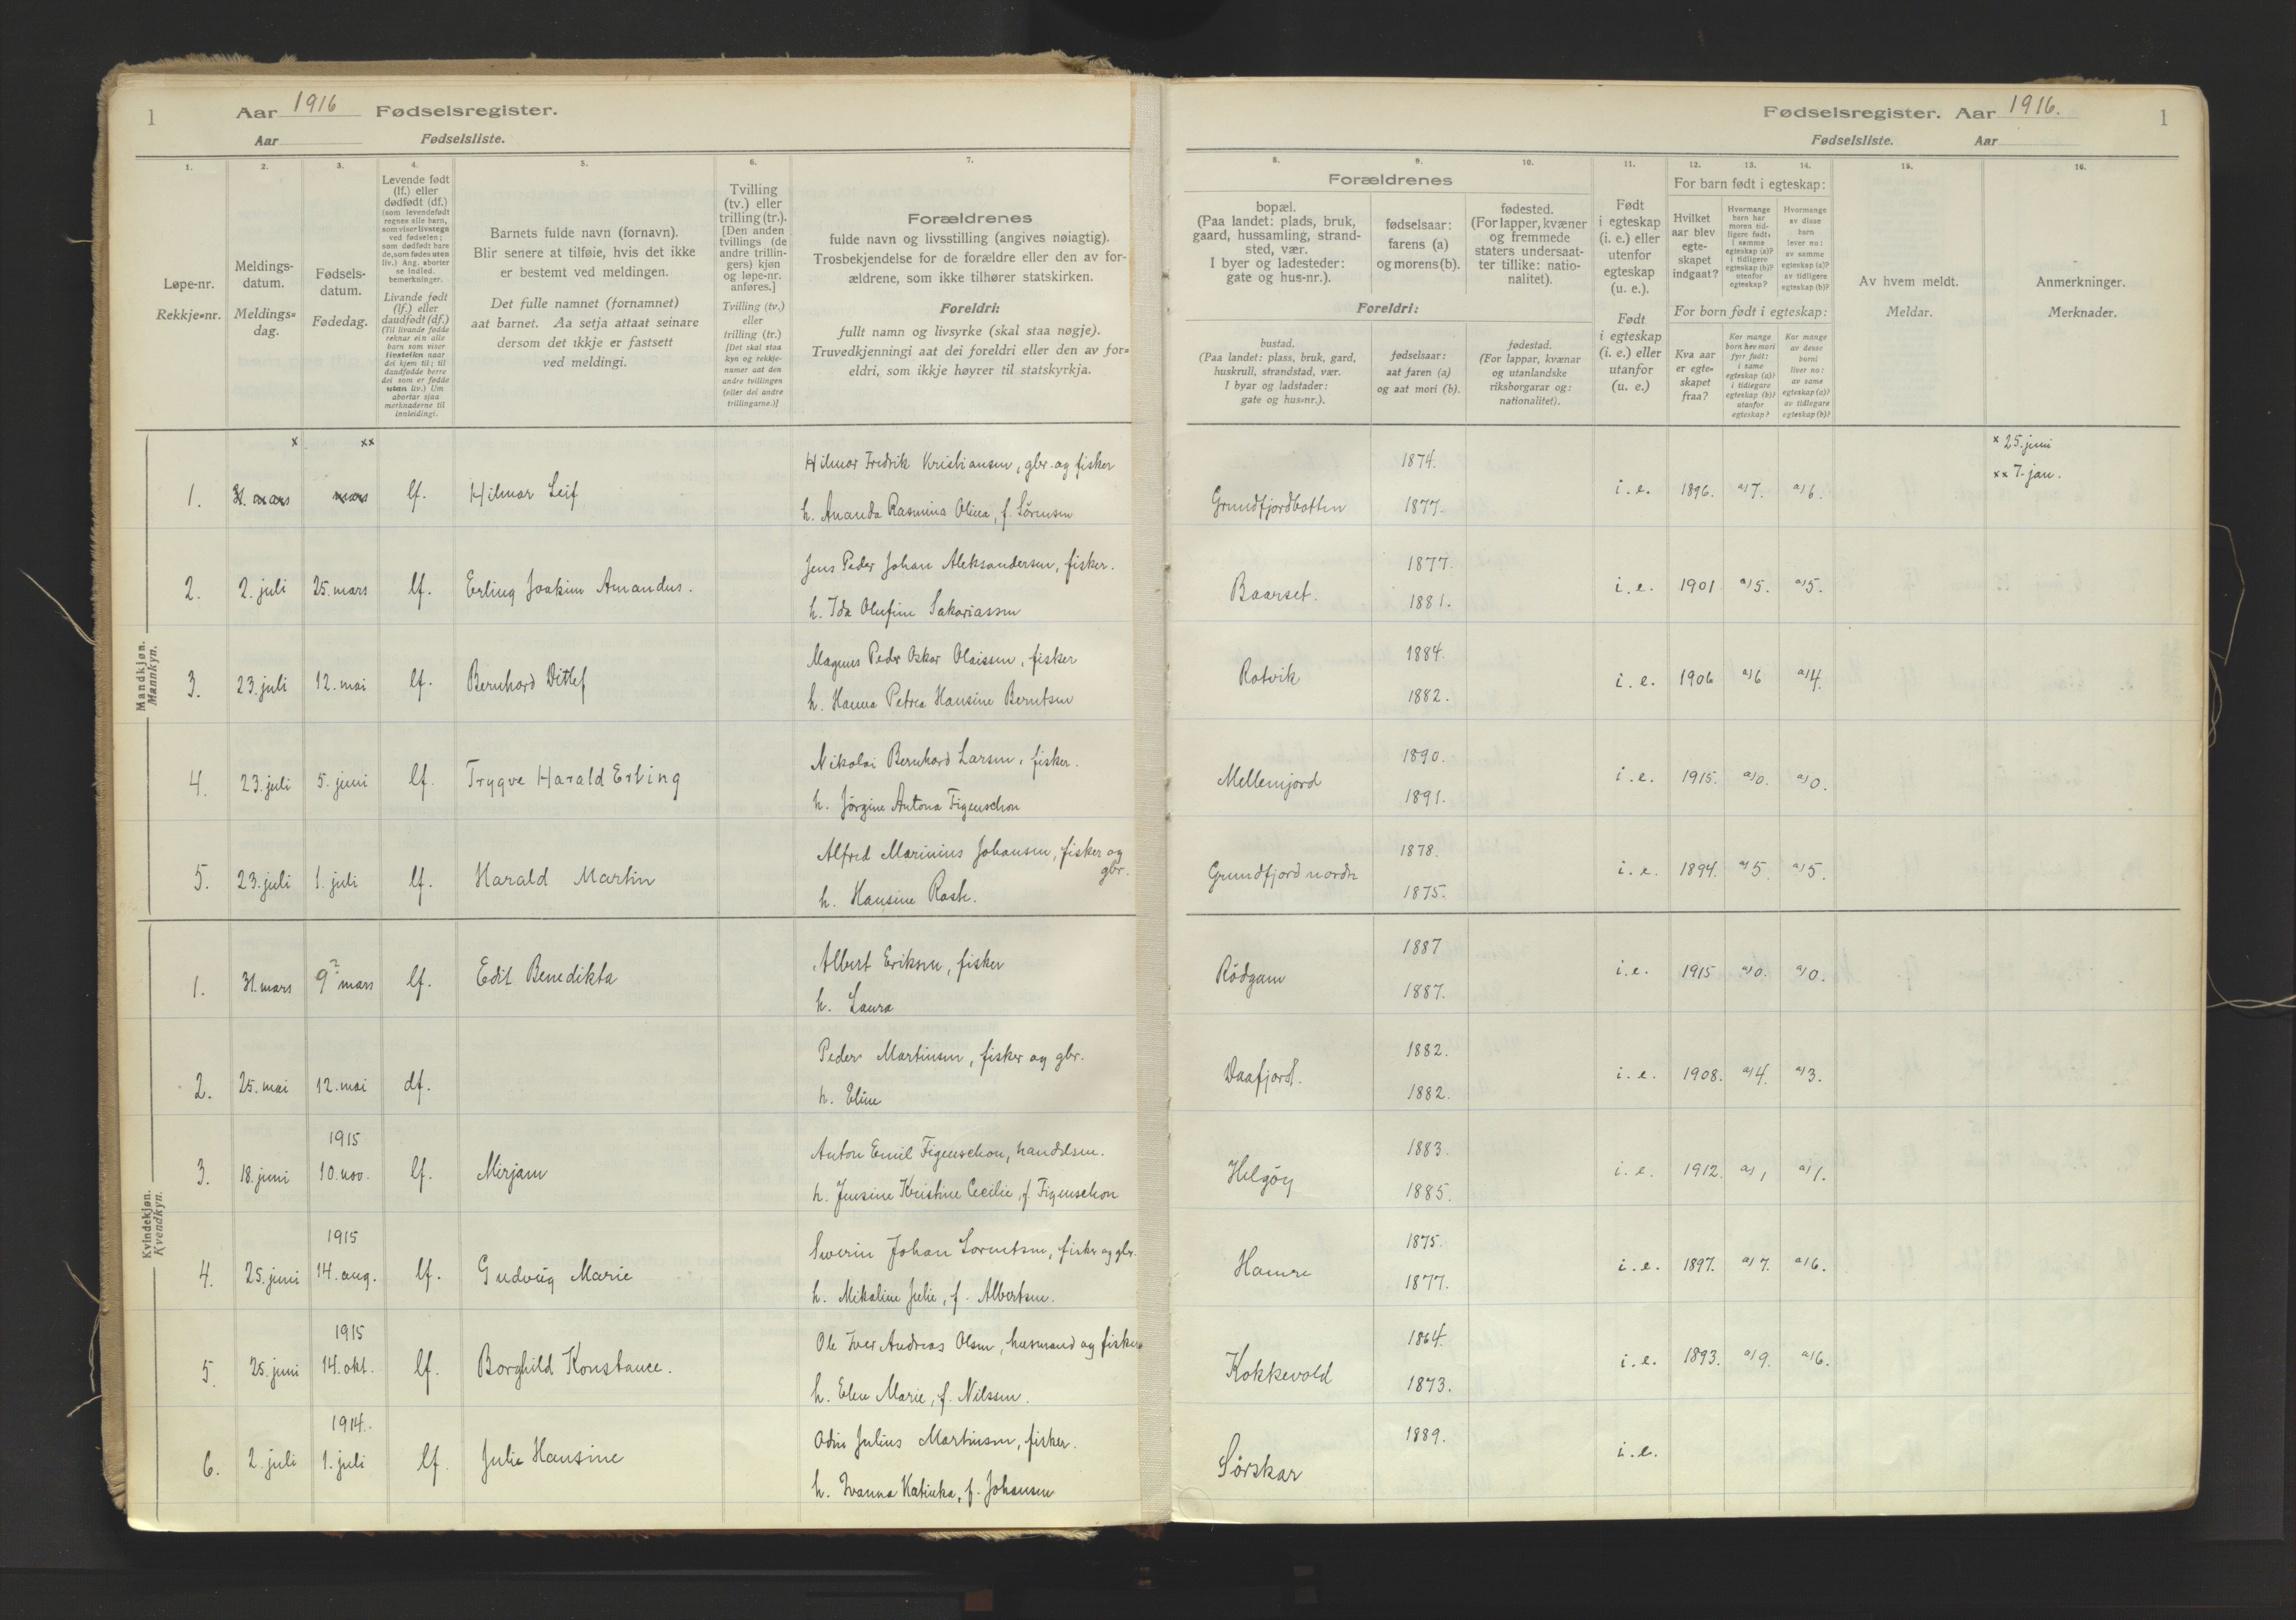 1
Aar 1916 Fødselsregister.
Aar Fødselsliste.
1. 2. 3. 4. 5. 6. 7.
Løpe-nr.
Rekkje-nr.
Meldings-
datum.
Meldings-
dag.
Fødsels-
datum.
Fødedag.
Levende født
(lf.) eller
dødfødt (df.)
(som levendefødt
regnes alle barn,
som viser livstegn
ved fødselen;
som dødfødt bare
de, som fødes uten
liv.) Ang. aborter
se indled.
bemerkninger.
Livande født
(lf.) eller
daudfødt (df.)
(Til livande fødde
reknar ein alle
barn som viser
livsteikn naar
dei kjem til; til
daudfødde berre
dei som er fødde
utan liv.) Um
abortar sjaa
merknaderne til
innleidingi.
Barnets fulde navn (fornavn).
Blir senere at tilføie, hvis det ikke
er bestemt ved meldingen.
Det fulle namnet (fornamnet)
aat barnet. Aa setja attaat seinare
dersom det ikkje er fastsett
ved meldingi.
Tvilling
(tv.) eller
trilling (tr.).
[Den anden
tvillings (de
andre trillin-
gers) kjøn
og løpe-nr.
anføres.]
Tvilling (tv.)
eller
trilling (tr.)
[Det skal staa
kyn og rekkje-
numer aat den
andre tvillingen
(eller dei andre
trillingarne.)]
Forældrenes
fulde navn og livsstilling (angives nøiagtig).
Trosbekjendelse for de forældre eller den av for-
ældrene, som ikke tilhører statskirken.
Foreldri:
fullt namn og livsyrke (skal staa nøgje).
Truvedkjenningi aat dei foreldri eller den av for-
eldri, som ikkje høyrer til statskyrkja.
Mandkjøn.
Mannkyn.
x xx
Hilmar Fredrik Kristiansen, gbr. og fisker
1. 31. mars mars lf. Hilmar Leif
h. Ananda Rasmina Olina, f. Sørensen
Jens Peder Johan Aleksandersen, fisker.
2. 2. juli 25. mars lf. Erling Joakim Amandus.
h. Ida Olufine Sakariassen
Magnus Peder Oskar Olaissen, fisker
3. 23. juli 12. mai lf. Bernhard Ditlef
h. Hanna Petrea Hansine Berntsen
Nikolai Bernhard Larsen, fisker.
4. 23. juli 5. juni lf. Trygve Harald Erling
h. Jörgine Antona Figenschou
Alfred Marinius Johansen, fisker og
gbr.
5. 23. juli 1. juli lf. Harald Martin
h. Hansine Rask.
Kvindekjøn.
Kvendkyn.
Albert Eriksen, fisker
1. 31. mars 9? mars lf. Edit Benedikta
h. Laura
Peder Martinsen, fisker og gbr.
2. 25. mai 12. mai df.
h. Eline
1915
Anton Emil Figenschou, handelsm.
3. 18. juni 10. nov. lf. Mirjam
h. Jensine Kristine Cecilie, f. Figenschou
1915
Severin Johan Lorentsen, fisker og gbr.
4. 25. juni 14. aug. lf. Gudvig Marie
h. Mikaline Julie, f. Albertsen.
1915
Ole Iver Andreas Olsen, husmand og fisker
5. 25. juni 14. okt. lf. Borghild Konstance.
h. Elen Marie, f. Nilssen.
1914.
Odin Julius Martinsen, fisker.
6. 2. juli 1. juli lf. Julie Hansine
h. Ivanna Katinka, f. Johansen
Fødselsregister. Aar 1916. 1
Fødselsliste. Aar
8. 9. 10. 11. 12. 13. 14. 15. 16.
Forældrenes
bopæl.
(Paa landet: plads, bruk,
gaard, hussamling, strand-
sted, vær.
I byer og ladesteder:
gate og hus-nr.).
fødselsaar:
farens (a)
og morens (b).
fødested.
(For lapper, kvæner
og fremmede
staters undersaat-
ter tillike: natio-
nalitet).
Foreldri:
bustad.
(Paa landet: plass, bruk, gard,
huskrull, strandstad, vær.
I byar og ladstader:
gate og hus-nr.).
fødselsaar:
aat faren (a)
og aat mori (b).
fødestad.
(For lappar, kvænar
og utanlandske
riksborgarar og:
nationalitet).
Født
i egteskap
(i. e.) eller
utenfor
egteskap
(u. e.).
Født
i egteskap
(i. e.) eller
utanfor
(u. e.)
For barn født i egteskap:
Hvilket
aar blev
egte-
skapet
indgaat?
Hvormange
barn har
moren tid-
ligere født,
i samme
egteskap (a)?
i tidligere
egteskap (b)?
utenfor
egteskap?
Hvormange
av disse
barn
lever nu:
av samme
egteskap (a)?
av tidligere
egteskap (b)?
For born født i egteskap:
Kva aar
er egte-
skapet
fraa?
Kor mange
born hev mori
fyrr født:
i same
egteskap (a)?
i tidlegare
egteskap (b)?
utanfor
egteskap?
Kor mange
av desse
borni
liver no:
av same
egteskap (a)?
av tidlegare
egteskap (b)?
Av hvem meldt.
Meldar.
Anmerkninger.
Merknader.
x 25. juni
xx 7. jan.
1874.
Grundfjordbotten 1877. i. e. 1896. a) 7. a) 6.
1877.
Baarset. 1881. i. e. 1901 a) 5. a) 5.
1884.
Rotvik 1882. i. e. 1906 a) 6 a) 4.
1890.
Mellemjord 1891. i. e. 1915. a) 0. a) 0.
1878.
Grundfjord nordre 1875. i. e. 1894. a) 5. a) 5.
1887
Rödgam 1887. i. e. 1915 a) 0. a) 0.
1882.
Daafjord. 1882. i. e. 1908. a) 4. a) 3.
1883.
Helgöy 1885. i. e. 1912. a) 1 a) 1.
1875.
Hamre 1877. i. e. 1897. a) 7. a) 6.
1864.
Kokkevold 1873. i. e. 1893. a) 9. a) 6.
1889.
Sörskar i. e.